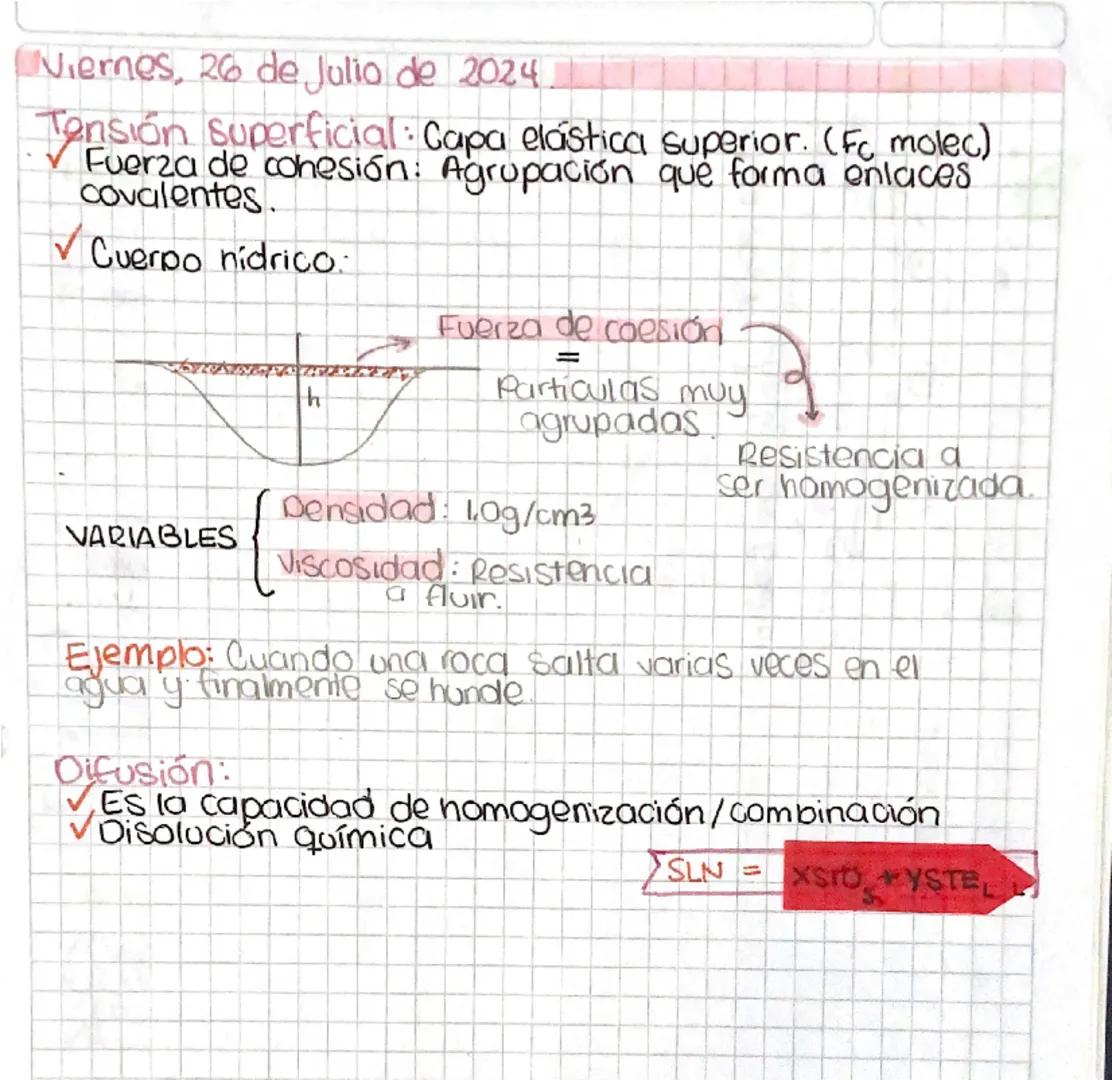 Viernes, 26 de Julio de 2024.
Tensión superficial: Capa elástica superior. (Fc molec)
✓ Fuerza de cohesión: Agrupación que forma enlaces
covalentes.
✓ Cuerpo hídrico:
Fuerza de coesión
=
Partículas muy
agrupadas.
h
Resistencia a
ser homogenizada.
VARIABLES
Densidad: 1.0g/cm3
Viscosidad: Resistencia
a fluir.
Ejemplo: Cuando una roca salta varias veces en el
agua y finalmente se hunde.
Difusión:
✓ Es la capacidad de homogenización/combinación
✓ Disolución química
SLN = XSTO s + YSTE L